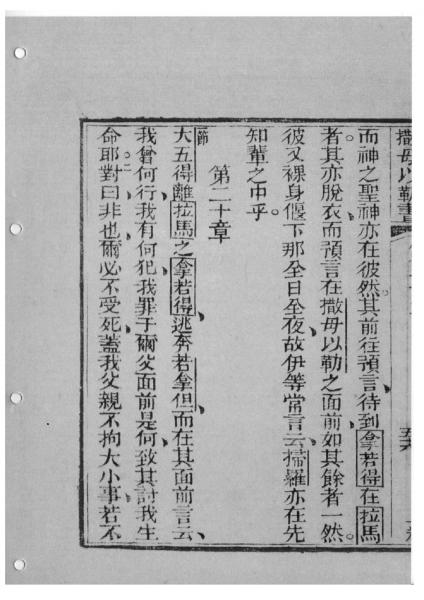 撒母以勒書
而神之聖神亦在彼然其前往預言待到拿若得在拉馬
者其亦脫衣而預言在撒母以勒之面前如其餘者一然
彼又裸身偃下那全日全夜故伊等常言云掃羅亦在先
知輩之中乎
第二十章
節
大五得離拉馬之拿若得逃奔若拿但而在其面前言云
我曾何行我有何犯我罪于爾父面前是何致其討我生
命耶對曰非也爾必不受死蓋我父親不拘大小事若不